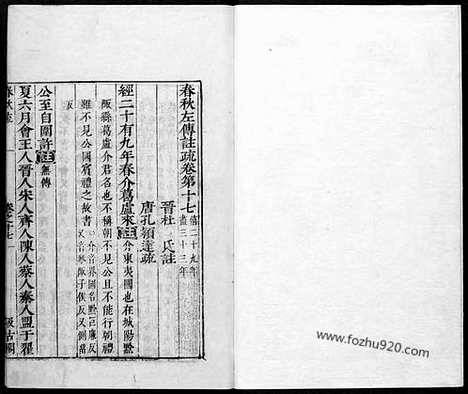 春秋左傳註疏卷第十七 僖二十九年
盡三十三年
晉杜氏註
唐孔穎達疏
經二十有九年春介葛盧來 註 介東夷國也在城陽黔
陬縣葛盧介君名也不稱朝不見公且不能行朝禮
雖不見公國賓禮之故書
公至自圍許 註 無傳
夏六月會王人晉人宋人齊人陳人蔡人秦人盟于翟
汲古閣
www.fozhu920.com